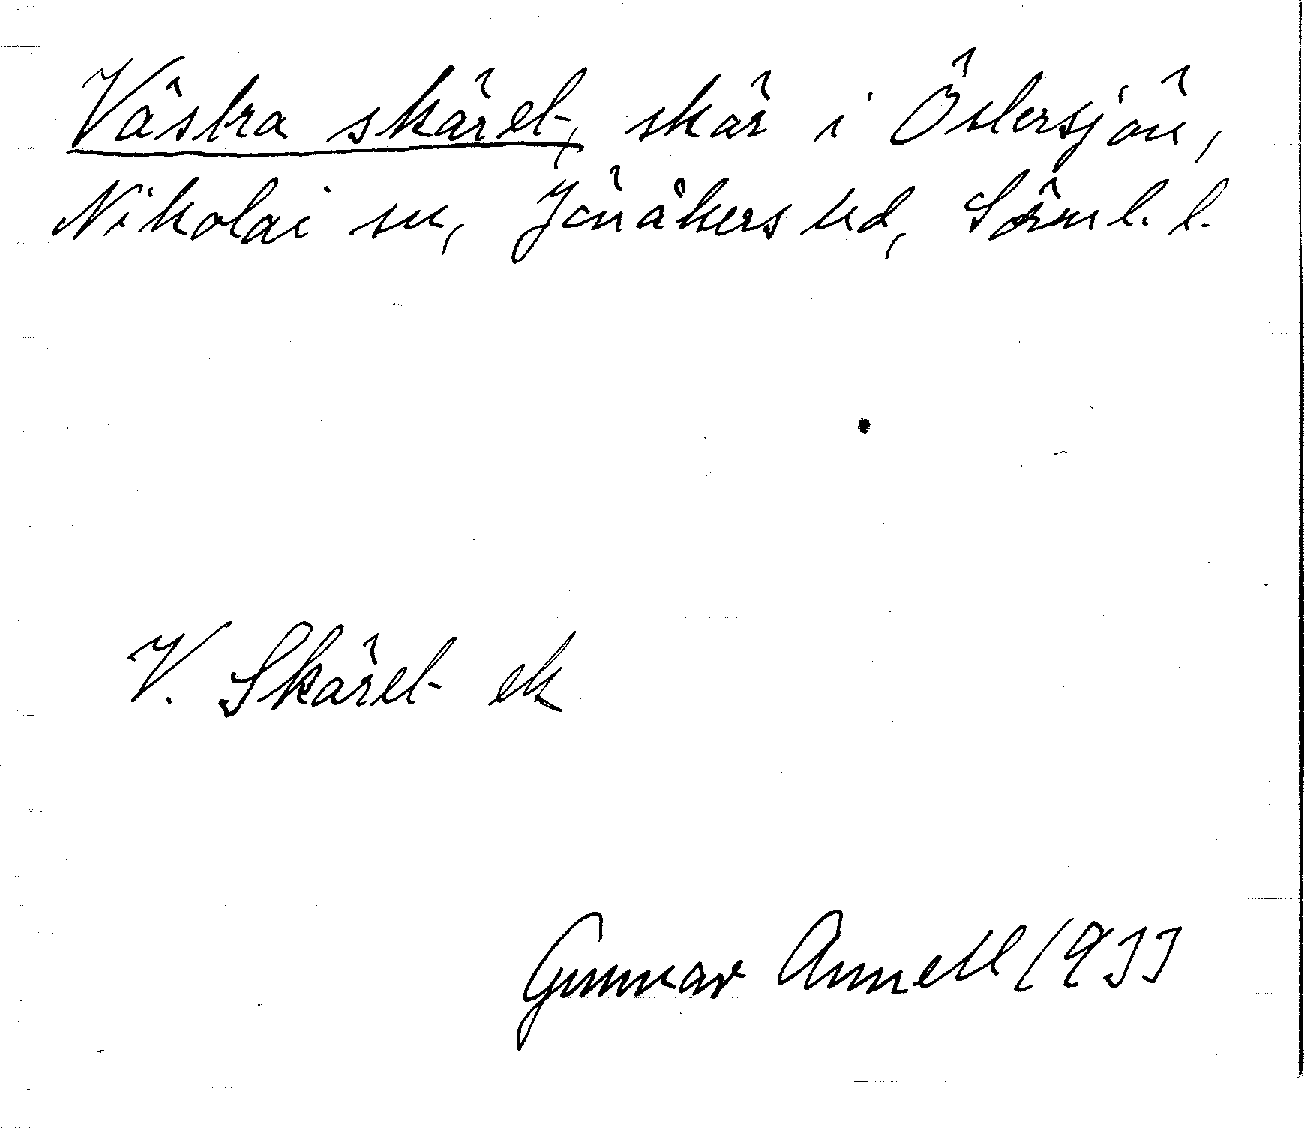 Västra skäret, skär i Östersjön,
Nikolai sn, Jönåkers hd, Söml. l.
V. Skäret ek
Gunnar Annell 1933